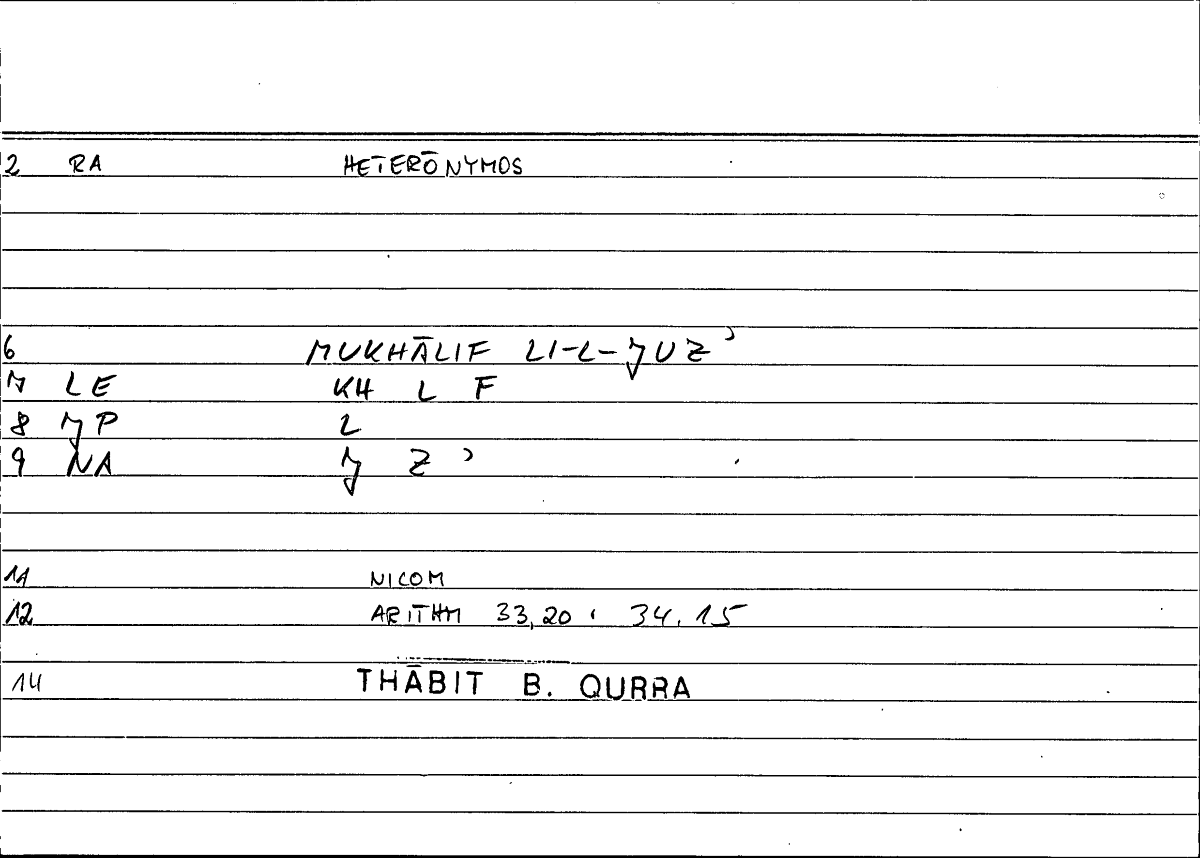 2 RA HETERŌNYMOS
6 MUKHĀLIF LI-L-JUZʾ
7 LE KH L F
8 JP L
9 NA J Z ʾ
11 NICOM
12 ARITHM 33,20 , 34.15
14 THĀBIT B. QURRA